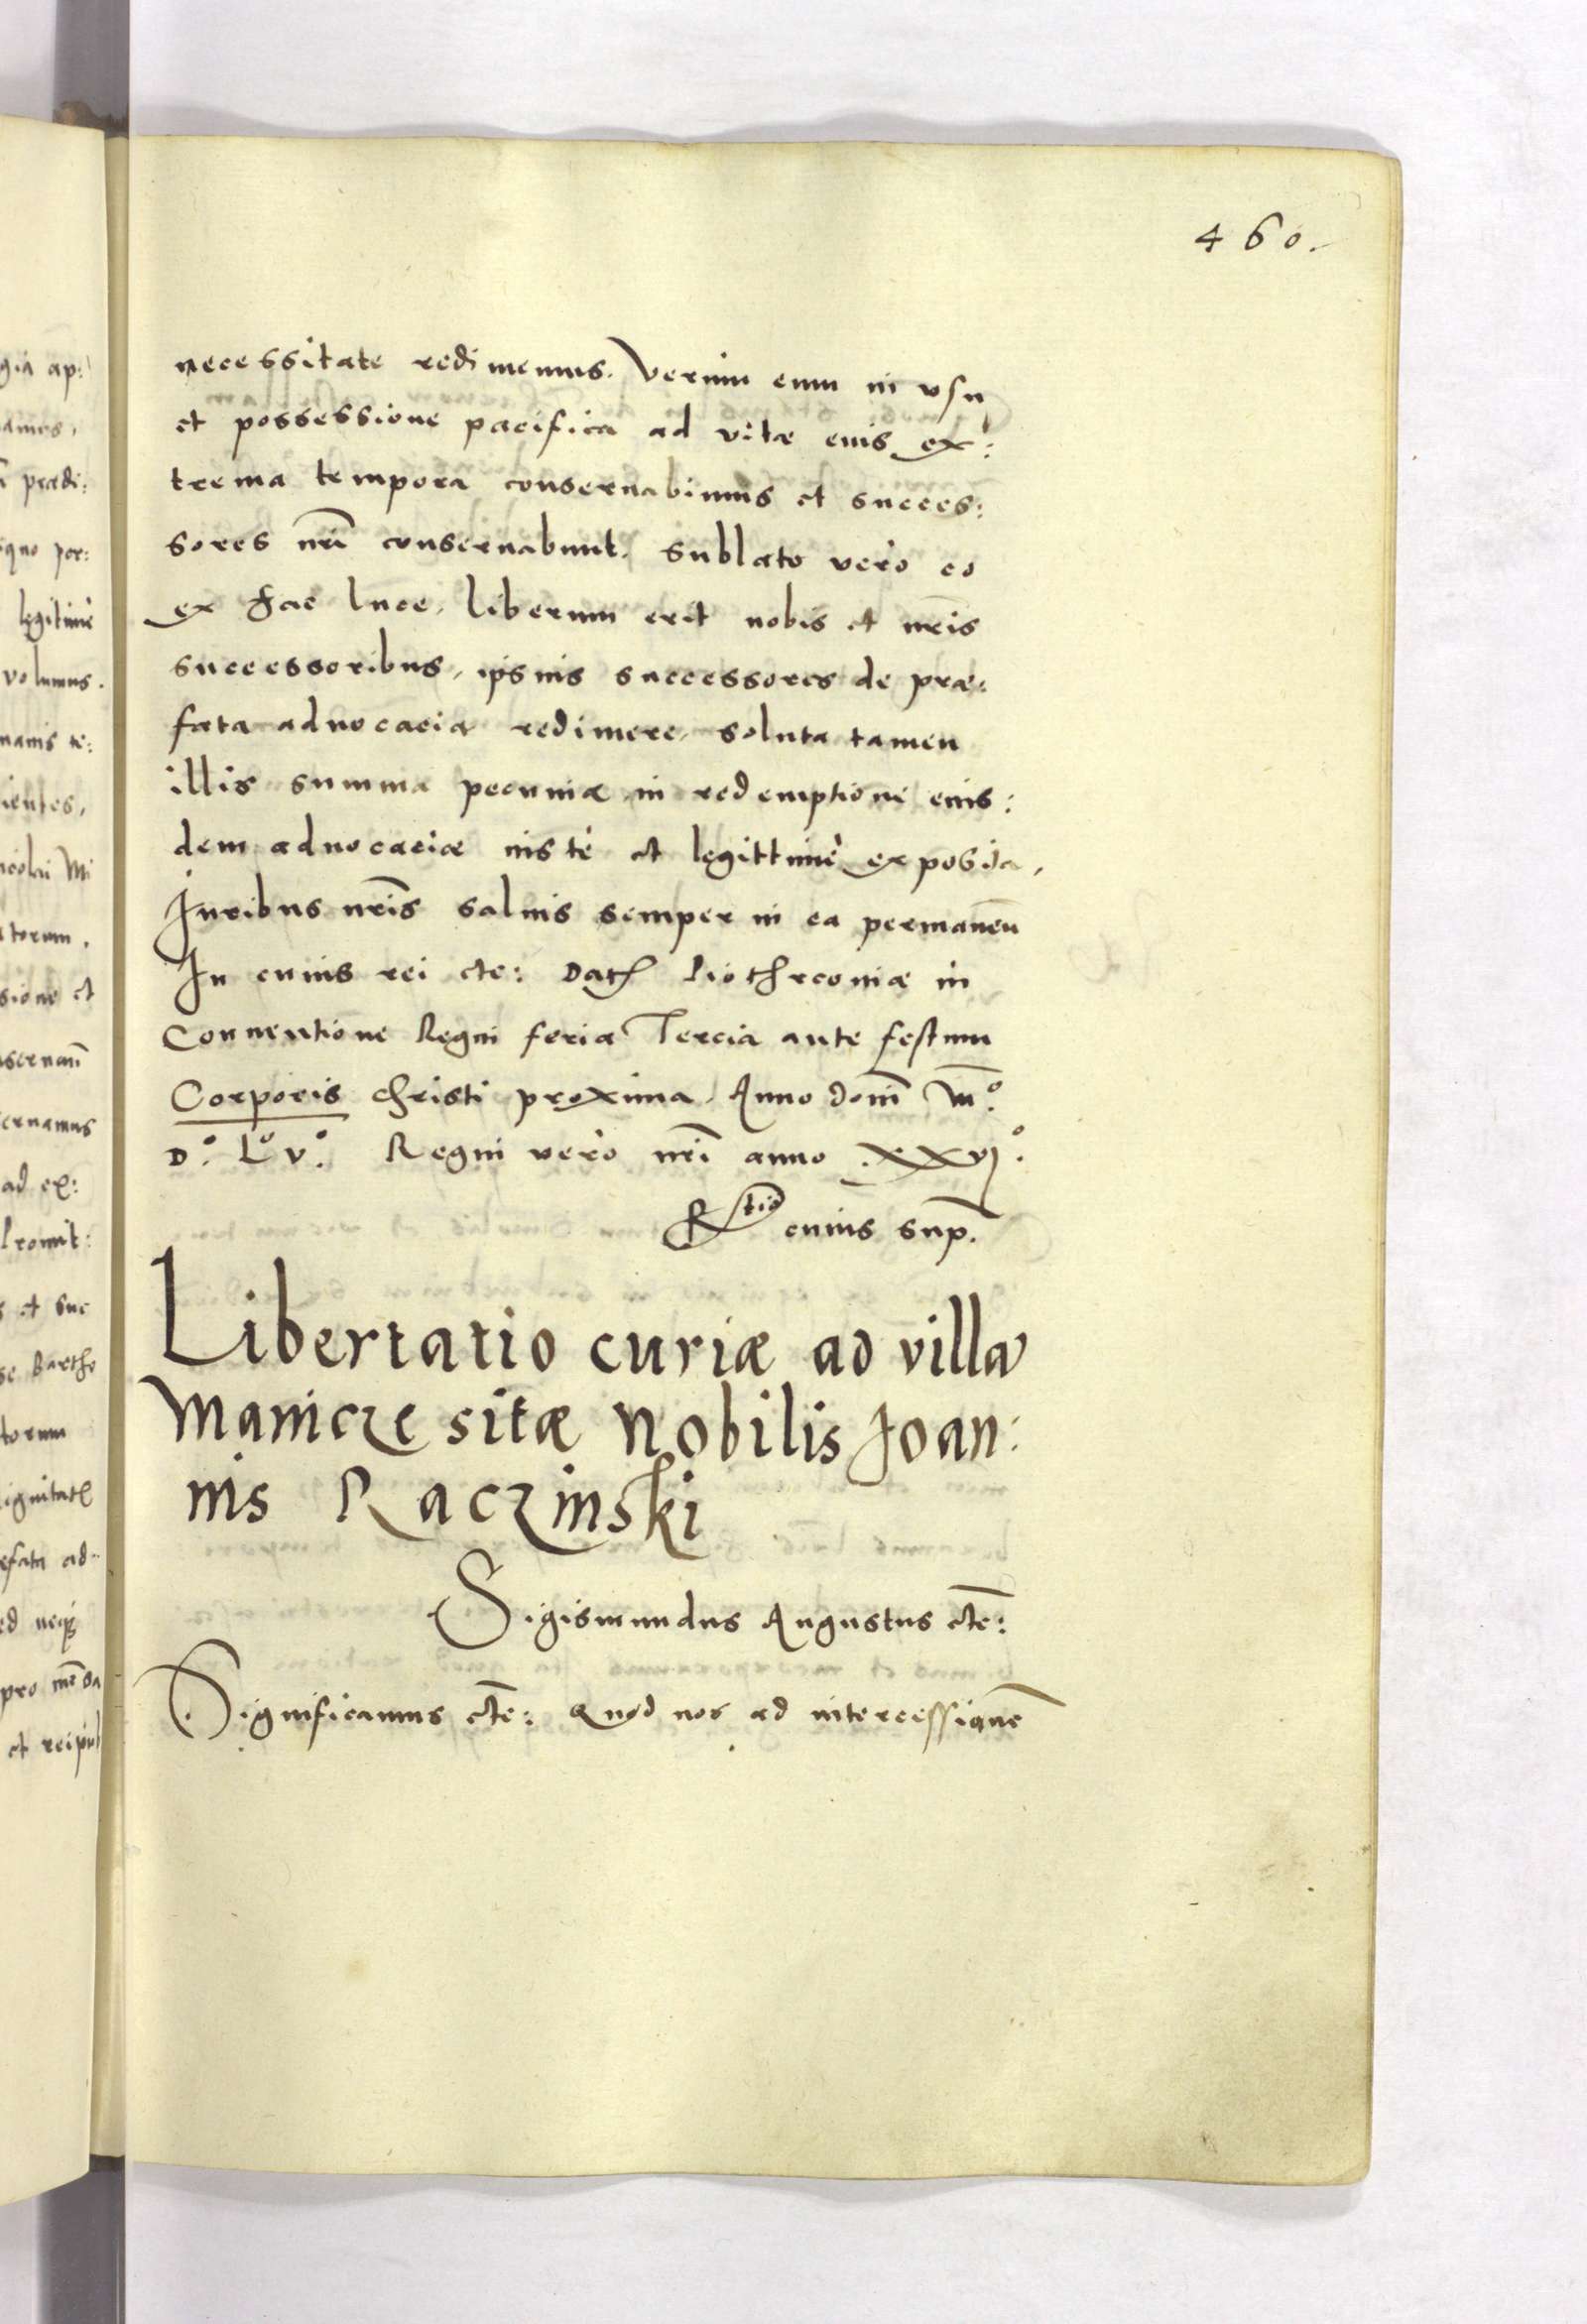 460.
necessitate redimemus. Verum eum in vsu
et possessione pacifica ad vitæ euis ex:
trema tempora conseruabimus et succes:
sores nr̄i conseruabunt. sublato vero eo
ex hac luce, liberum erit nobis et nr̄is
successoribus, ipsuis successores de præ:
fata aduocacia redimere, soluta tamen
illis summa pecuniæ in redemptione euis:
dem aduocaciæ iuste et legittime exposita,
Iuribus nr̄is saluis semper in ea permaneñ
In cuius rei etc: Dat Piothrconiæ in
Conuentione Regni feria Tercia ante festum
Corporis christi proxima, Anno domī M.º
D.º Lº V.º Regni vero nr̄i anno .xxvj.º
Rtio cuius sup.
Libertatio curiæ ad villã
Manicze sitæ Nobilis Ioan:
nis Raczinski
Sigismundus Augustus etc̄:
Significamus etc̄: Quod nos ad intercessionē
gia ap:
prædi:
iquo per:
legitime
volumus.
ientes,
icolai Mi
torum.
sione et
eruamus
ad ex:
Promit:
s et suc
se Bartho
torum
ignitat
efata ad
ed neq
pro mēsa
et reipub